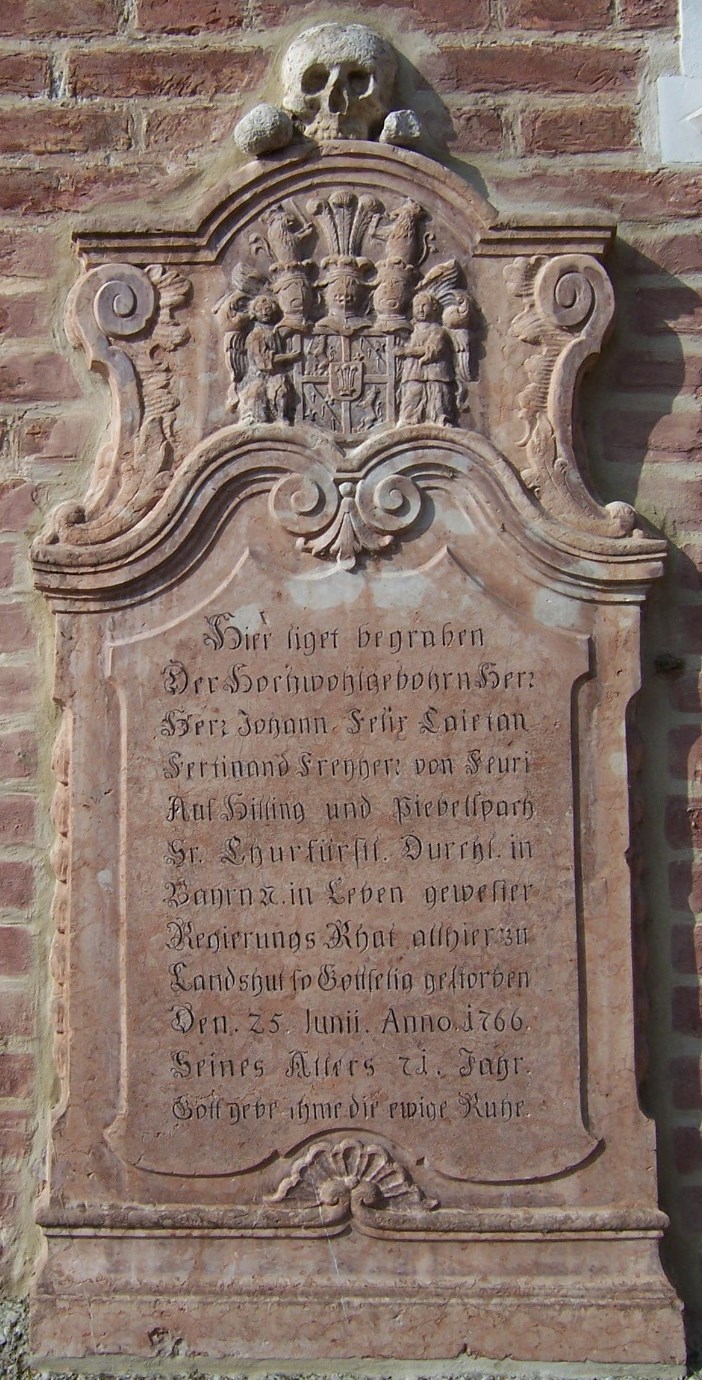 Hier liget begraben
Der Hochwohlgebohrn Herr
Herr Johann. Felix Caietan
Ferdinand Freyherr von Feuri
Auf Hilsing und Piebelspach
Sr. Churfürstl. Durchl. in
Bayrn ⁊. in Leben gewester
Regierungs Rhat allhier zu
Landshut so Gottselig gestorben
Den. 25. Junii. Anno. 1766.
Seines Alters 71. Jahr.
Gott gebe ihme die ewige Ruhe.